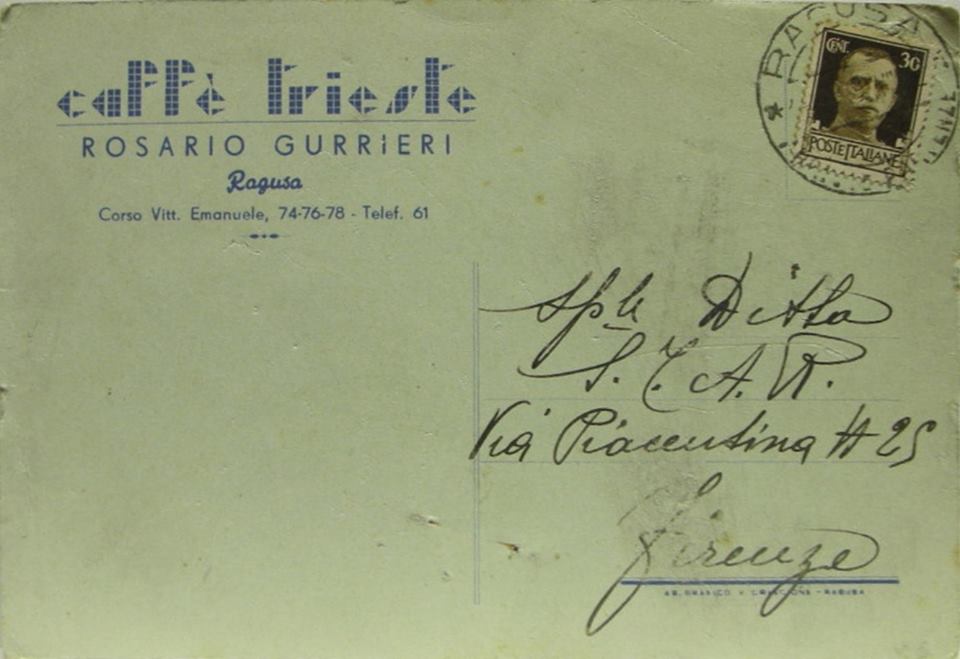 caffè trieste
ROSARIO GURRIERI
Ragusa
Corso Vitt. Emanuele, 74-76-78 - Telef. 61
RAGUSA
CENT. 30
POSTE ITALIANE
Sple Ditta
S. T. A. R.
Via Piacentina N 25
Firenze
- RAGUSA